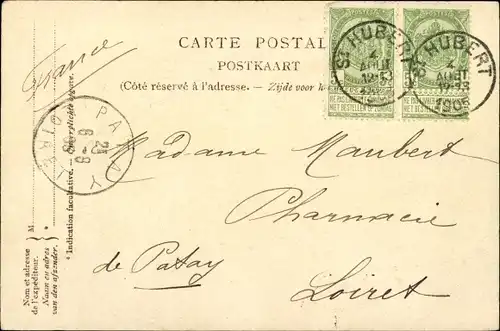 CARTE POSTAL
POSTKAART
(Côté réservé à l'adresse. — Zijde voor
France
St HUBERT
4
AOUT
1905
St HUBERT
4
AOUT
1905
NE PAS LIVRER LE DIMANCHE
NIET BESTELLEN OP ZONDAG
PATAY
LOIRET
Madame Maubert
Pharmacie
de Patay
Loiret
* Indication facultative. — Onverplichte opgave.
M.
Nom et adresse
de l'expéditeur.
Naam en adres
van den afzender.
*